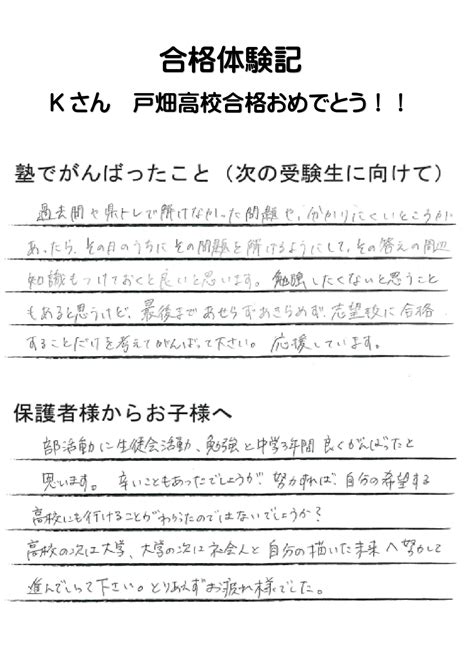 合格体験記
Kさん　戸畑高校合格おめでとう！！
塾でがんばったこと（次の受験生に向けて）
過去問や県トレで解けなかった問題や、分かりにくいところが
あったら、その日のうちにその問題を解けるようにして、その答えの周辺
知識もつけておくと良いと思います。勉強したくないと思うこと
もあると思うけど、最後まであせらずあきらめず、志望校に合格
することだけを考えてがんばって下さい。応援しています。
保護者様からお子様へ
部活動に生徒会活動、勉強と中学3年間良くがんばったと
思います。辛いこともあったでしょうが、努力すれば、自分の希望する
高校にも行けることがわかったのではないでしょうか？
高校の次は大学、大学の次は社会人と自分の描いた未来へ努力して
進んでいって下さい。とりあえずお疲れ様でした。